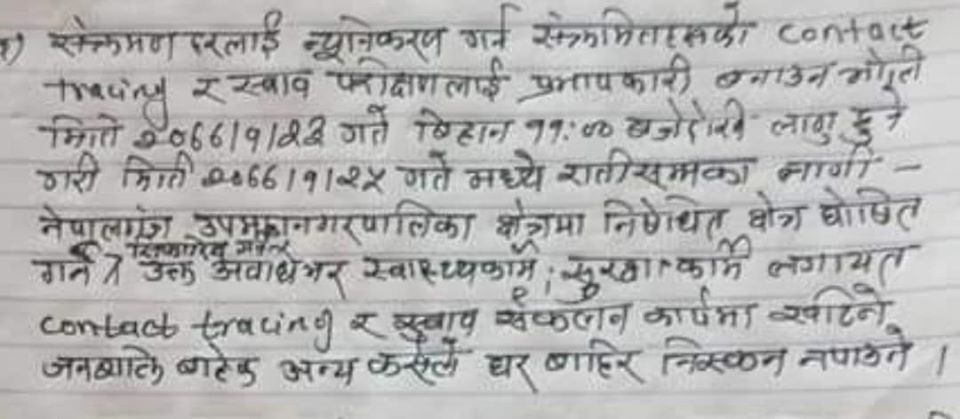 १) संक्रमण दरलाई न्यूनिकरण गर्न संक्रमितहरूको contact
tracing र स्वाव परीक्षणलाई प्रभावकारी बनाउन
मिति २०७७।१।२३ गते बिहान ११:०० बजेदेखि लागु हुने
गरी मिती २०७७।१।२५ गते मध्ये रातीसम्मका लागी -
नेपालगंज उपमहानगरपालिका क्षेत्रमा निषेधित क्षेत्र घोषित
गर्न सिफारिस गर्ने र उक्त अवधिभर स्वास्थ्यकर्मी, सुरक्षाकर्मी लगायत
contact tracing र स्वाव संकलन कार्यमा खटिने
जनशक्ति बाहेक अन्य कसैले घर बाहिर निस्कन नपाउने ।